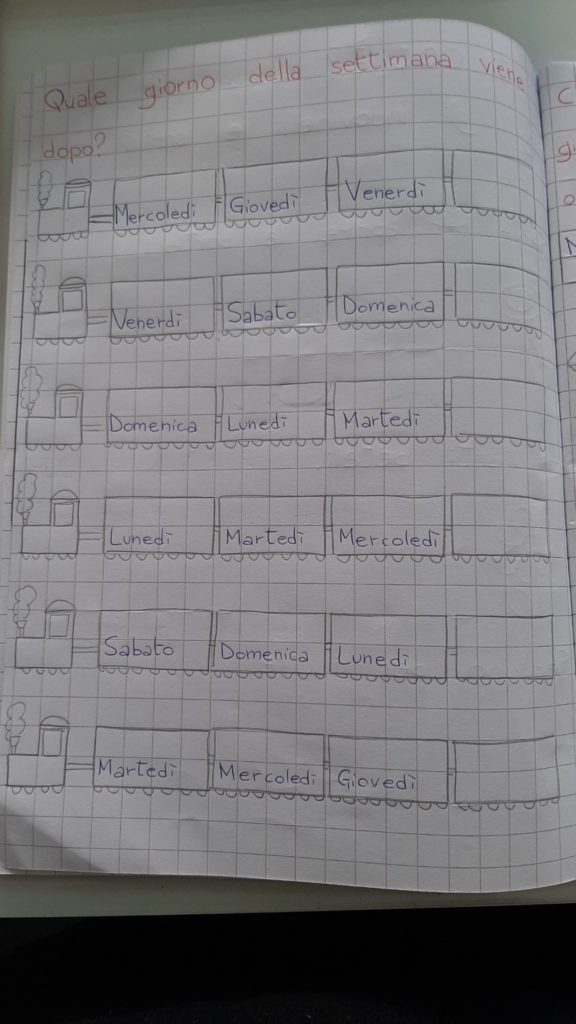 Quale giorno della settimana viene
dopo?
Mercoledì Giovedì Venerdì
Venerdì Sabato Domenica
Domenica Lunedì Martedì
Lunedì Martedì Mercoledì
Sabato Domenica Lunedì
Martedì Mercoledì Giovedì